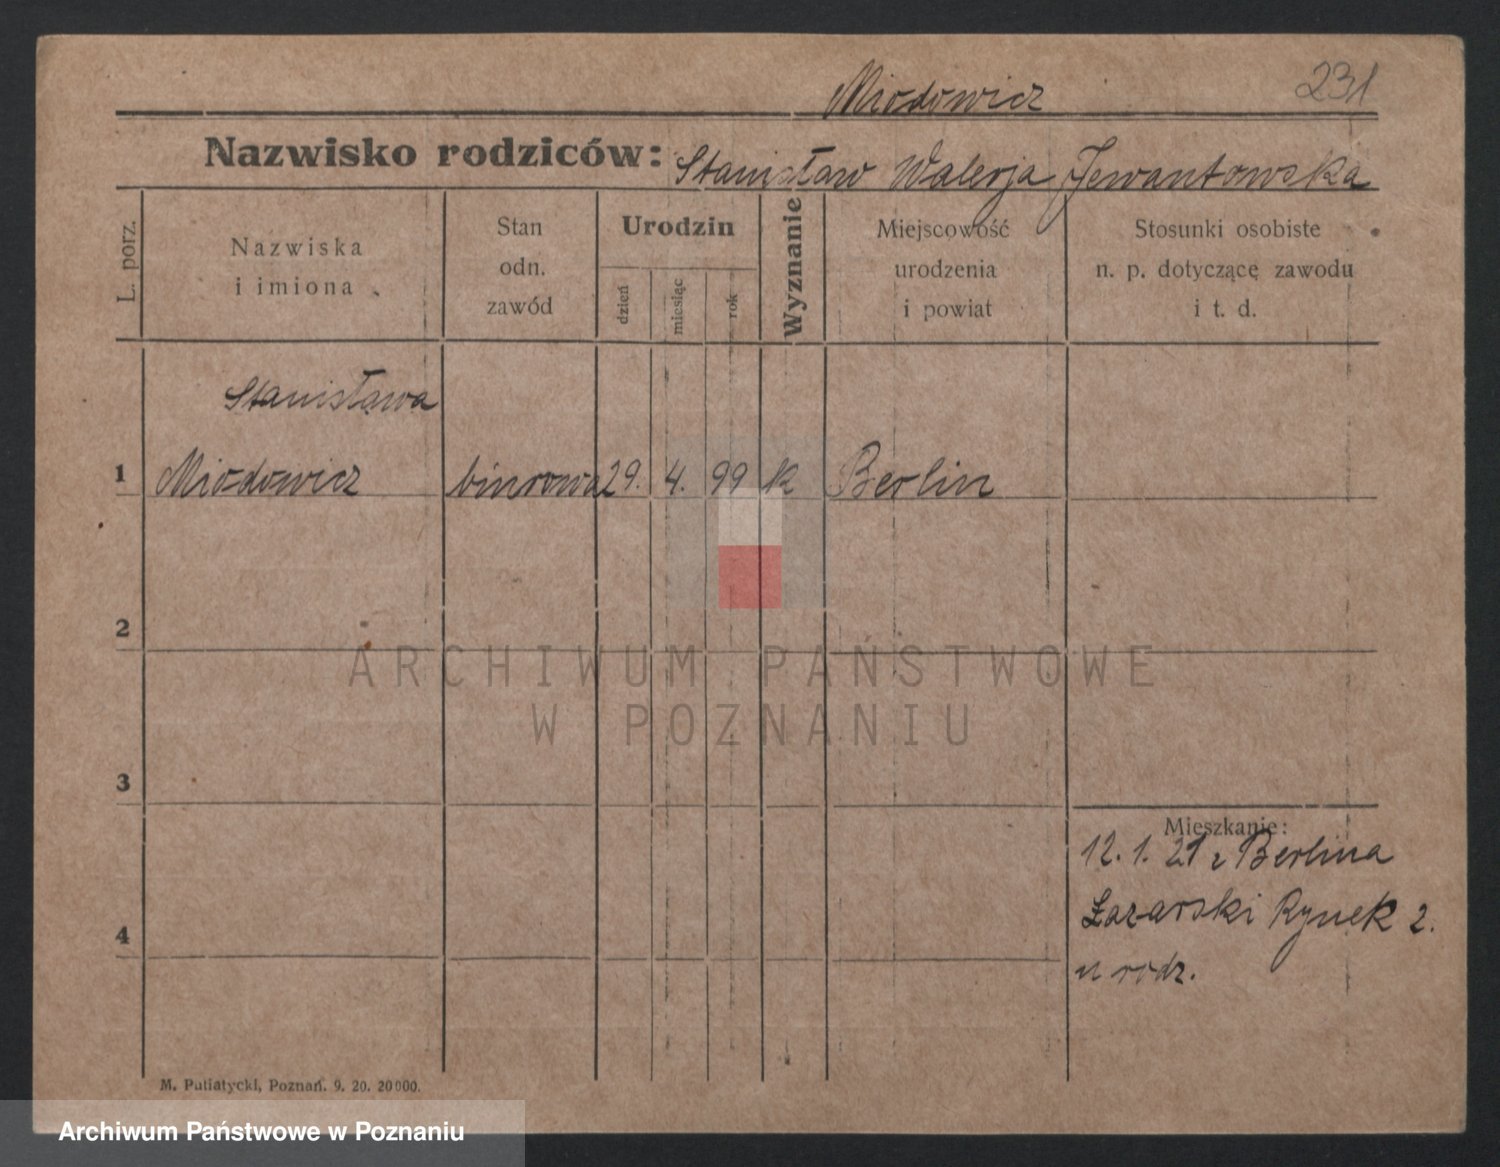 Miodowicz
231
Nazwisko rodziców: Stanisław Walerja Jewantowska
L. porz.
Nazwiska
i imiona
Stan
odn.
zawód
Urodzin
dzień
miesiąc
rok
Wyznanie
Miejscowość
urodzenia
i powiat
Stosunki osobiste
n. p. dotyczącę zawodu
i t. d.
Stanisława
1 Miodowicz biurowa 29. 4. 99 k Berlin
2
ARCHIWUM PAŃSTWOWE
W POZNANIU
3
Mieszkanie:
12. 1. 21 z Berlina
Łazarski Rynek 2.
4
u rodz.
M. Putiatycki, Poznań. 9. 20. 20000.
Archiwum Państwowe w Poznaniu